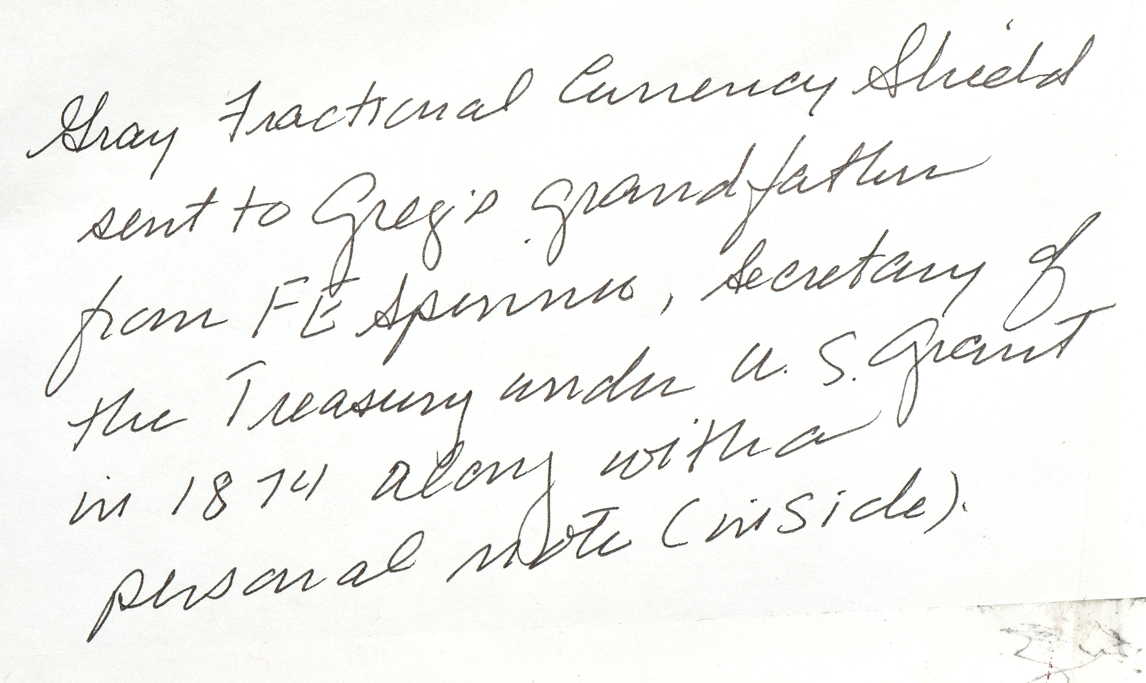 Gray Fractional Currency Shield
sent to Greg's grandfather
from FE Spinner, Secretary of
the Treasury under U. S. Grant
in 1874 along with a
personal note (inside).